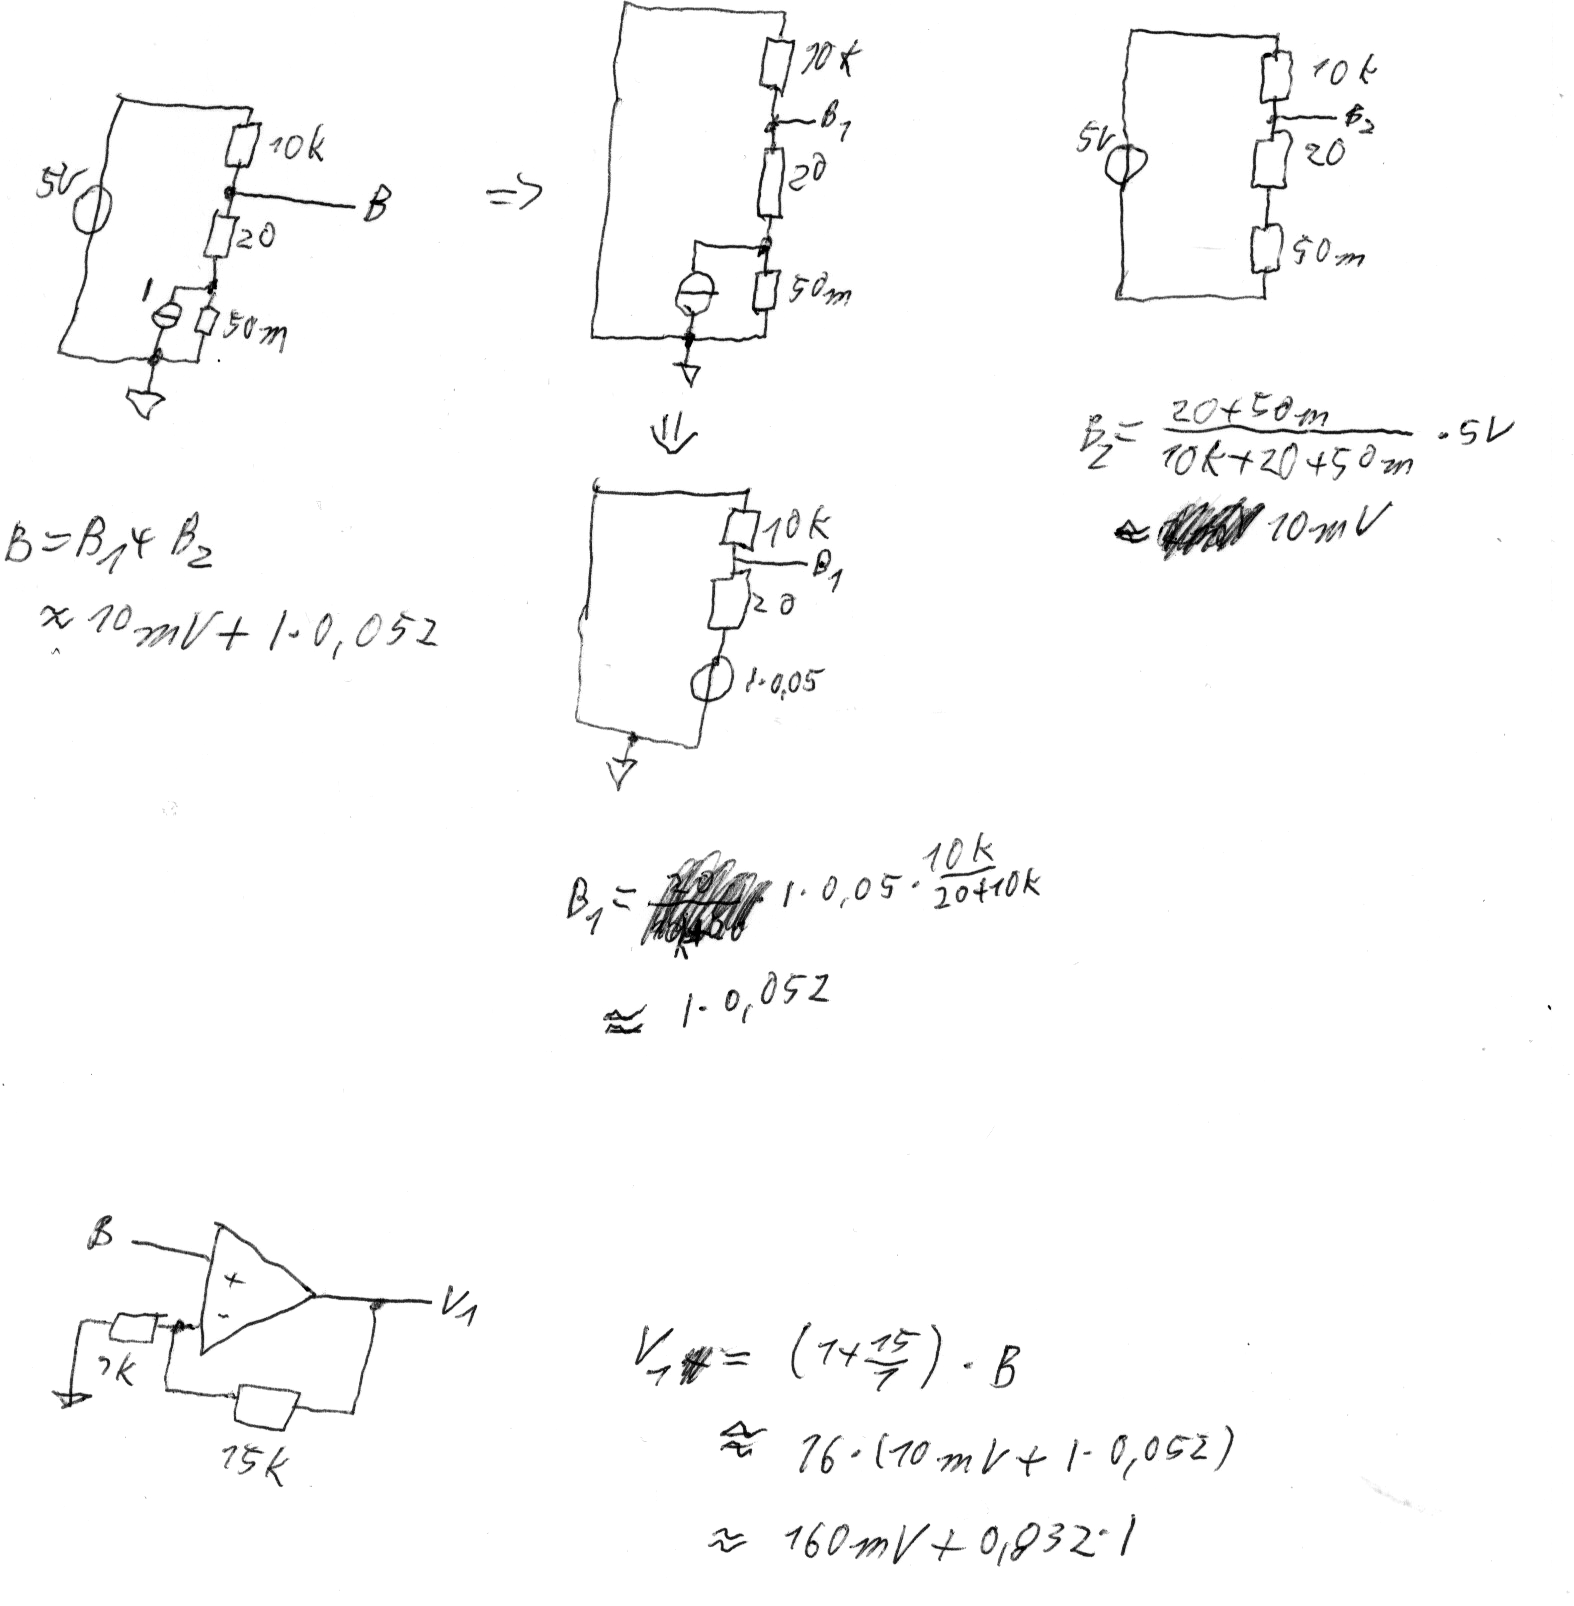 5V
10k
B
20
I
50m
=>
10k
B1
20
50m
5V
10k
B2
20
50m
B2 = (20+50m)/(10k+20+50m) · 5V
≈ 10mV
B = B1 + B2
≈ 10mV + I·0,052
10k
B1
20
I·0,05
B1 = I·0,05 · 10k/(20+10k)
≈ I·0,052
B
+
-
V1
1k
15k
V1 = (1+15/1) · B
≈ 16·(10mV + I·0,052)
≈ 160mV + 0,832·I